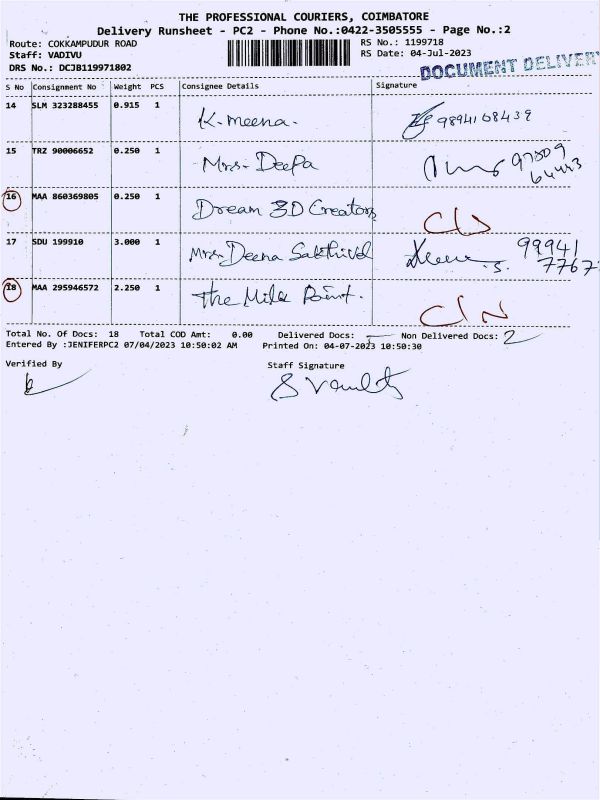 THE PROFESSIONAL COURIERS, COIMBATORE
Delivery Runsheet - PC2 - Phone No.:0422-3505555 - Page No.:2
Route: COKKAMPUDUR ROAD RS No.: 1199718
Staff: VADIVU RS Date: 04-Jul-2023
DRS No.: DCJB119971802
DOCUMENT DELIVERY
S No Consignment No Weight PCS Consignee Details Signature
14 SLM 323288455 0.915 1 K. meena. 9894168439
15 TRZ 90006652 0.250 1 Mrs. Deepa
16 MAA 860369805 0.250 1 Dream 3D Creators
17 SDU 199910 3.000 1 Mrs. Deena Sakthivel 99941
7767
18 MAA 295946572 2.250 1 The Milk Point.
Total No. Of Docs: 18 Total COD Amt: 0.00 Delivered Docs: Non Delivered Docs: 2
Entered By :JENIFERPC2 07/04/2023 10:50:02 AM Printed On: 04-07-2023 10:50:30
Verified By Staff Signature